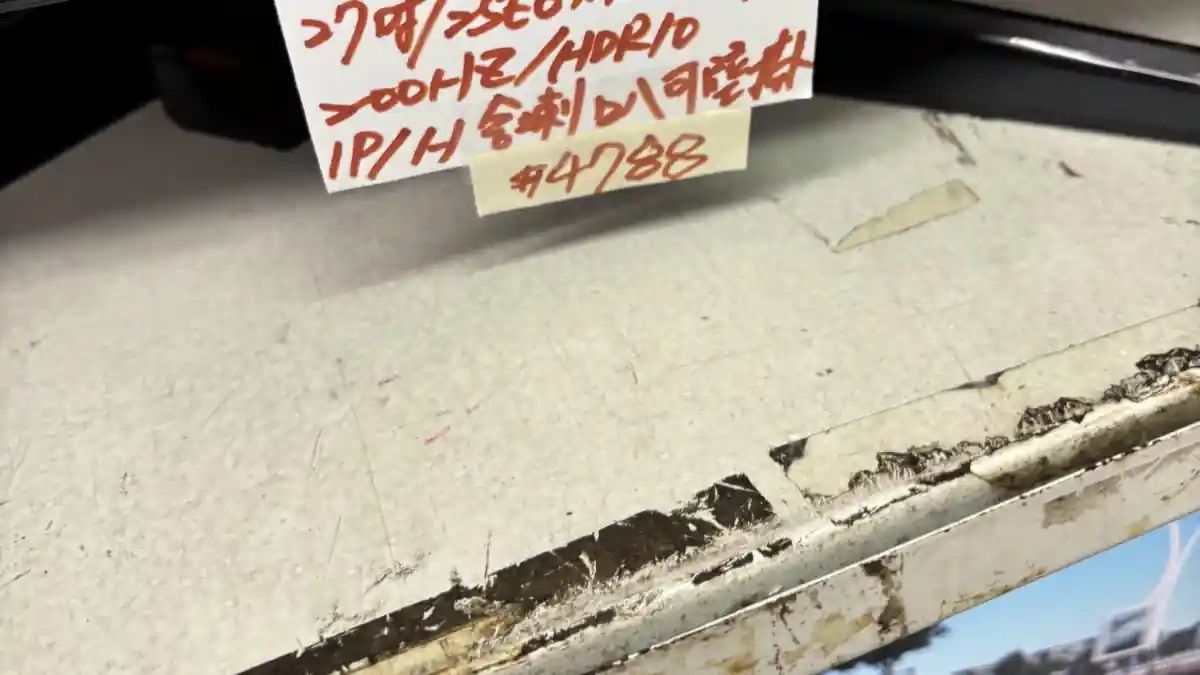 27吋/2560
200HZ/HDR10
1P/H 含喇叭可壁掛
#4788